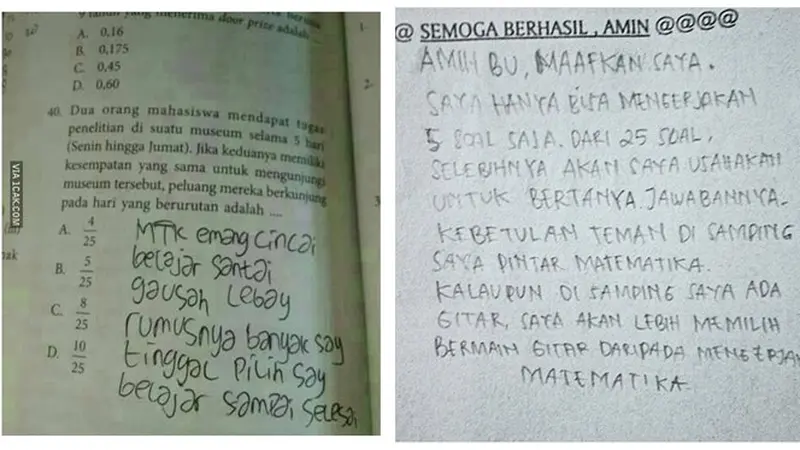 9 tahun yang menerima door prize adalah
A. 0,16
B. 0,175
C. 0,45
D. 0,60
40. Dua orang mahasiswa mendapat tugas
penelitian di suatu museum selama 5 hari
(Senin hingga Jumat). Jika keduanya memiliki
kesempatan yang sama untuk mengunjungi
museum tersebut, peluang mereka berkunjung
pada hari yang berurutan adalah ....
A. 4/25
B. 5/25
C. 8/25
D. 10/25
MTK emang cincai
belajar santai
gausah lebay
rumusnya banyak say
tinggal pilih say
belajar sampai selesai
VIA 1CAK.COM
@ SEMOGA BERHASIL , AMIN @@@@
AMIN BU, MAAFKAN SAYA.
SAYA HANYA BISA MENGERJAKAN
5 SOAL SAJA. DARI 25 SOAL,
SELEBIHNYA AKAN SAYA USAHAKAN
UNTUK BERTANYA JAWABANNYA.
KEBETULAN TEMAN DI SAMPING
SAYA PINTAR MATEMATIKA.
KALAUPUN DI SAMPING SAYA ADA
GITAR, SAYA AKAN LEBIH MEMILIH
BERMAIN GITAR DARIPADA MENGERJAN
MATEMATIKA.